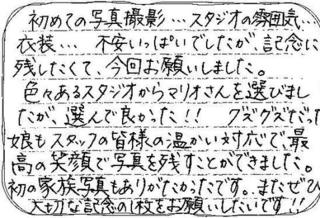 初めての写真撮影…スタジオの雰囲気…
衣装… 不安いっぱいでしたが、記念に
残したくて、今回お願いしました。
色々あるスタジオからマリオさんを選びまし
たが、選んで良かった!! グズグズだった
娘もスタッフの皆様の温かい対応で最
高の笑顔で写真を残すことができました。
初の家族写真もありがたかったです。またぜひ
大切な記念の1枚をお願いしたいです!!